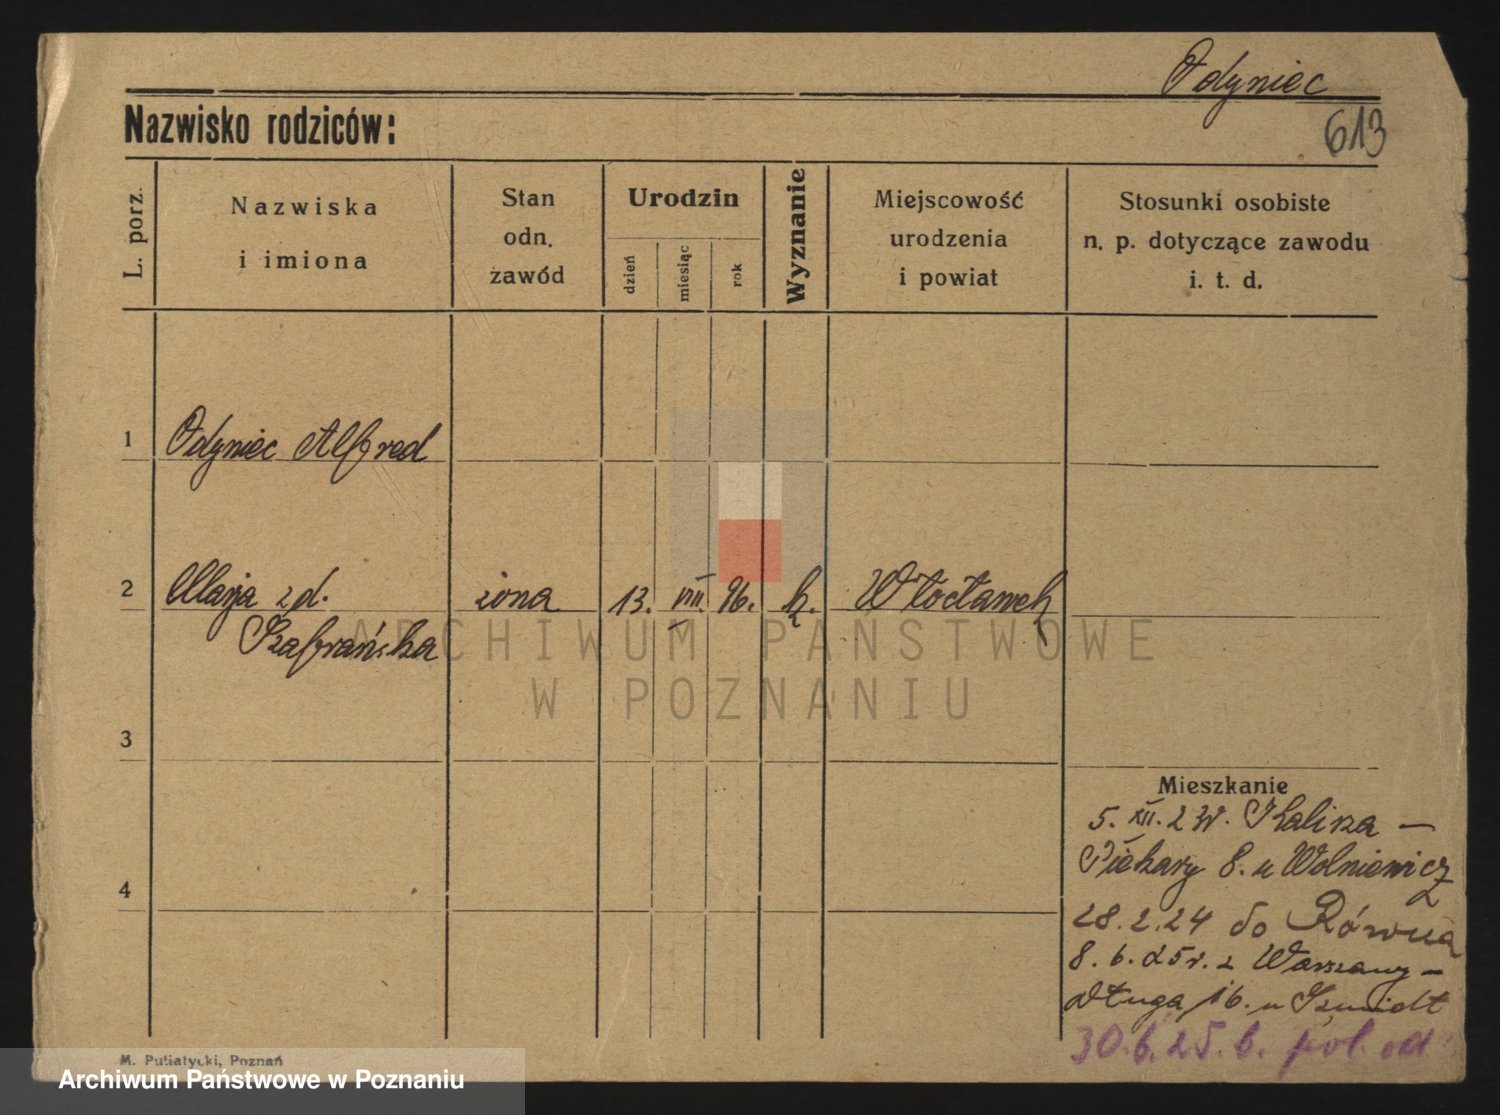 Odyniec
Nazwisko rodziców:
613
L. porz.
Nazwiska
i imiona
Stan
odn.
zawód
Urodzin
dzień
miesiąc
rok
Wyznanie
Miejscowość
urodzenia
i powiat
Stosunki osobiste
n. p. dotyczące zawodu
i. t. d.
1 Odyniec Alfred
2 Marja zd. żona 13. VIII. 96. k. Włocławek
Szafrańska
ARCHIWUM PAŃSTWOWE
W POZNANIU
3
Mieszkanie
5. XII. 2 Kalisza —
Piekary 8. u Wolniewicz
4
28.2.24 do Równa
8.6.25 r. z Warszawy —
Długa 16. u Szmidt
30.6.25. 6. pol. od
M. Putiatycki, Poznań
Archiwum Państwowe w Poznaniu